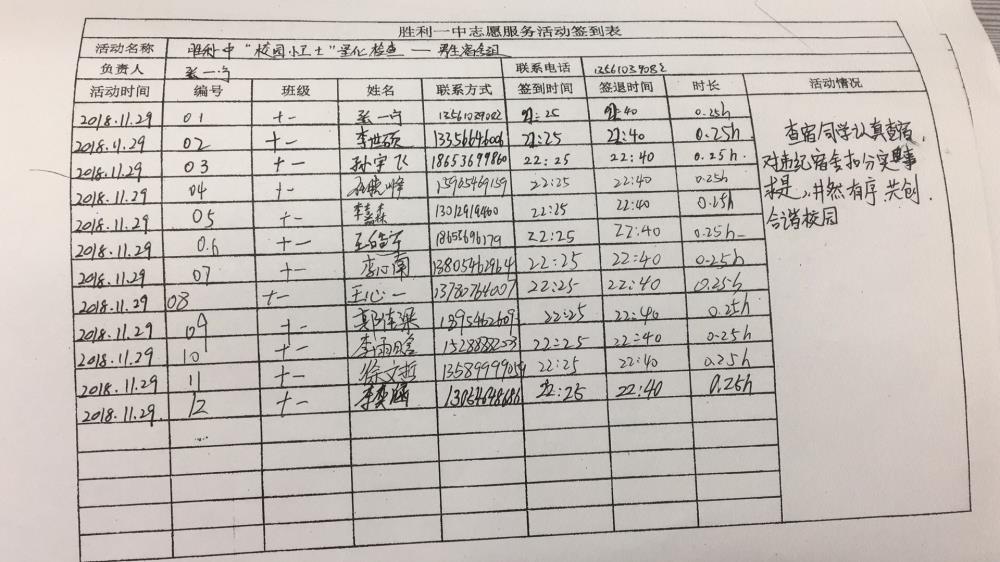 胜利一中志愿服务活动签到表
活动名称 胜利一中“校园小卫士”量化检查——男生宿舍组
负责人 张一宁 联系电话 13561039082
活动时间 编号 班级 姓名 联系方式 签到时间 签退时间 时长 活动情况
2018.11.29 01 十一 张一宁 13561039082 22:25 22:40 0.25h
2018.11.29 02 十一 李世硕 13356646006 22:25 22:40 0.25h
2018.11.29 03 十一 孙宇飞 18653699860 22:25 22:40 0.25h
2018.11.29 04 十一 15905469159 22:25 22:40 0.25h
2018.11.29 05 十一 李嘉森 13012919460 22:25 22:40 0.25h
2018.11.29 06 十一 22:25 22:40 0.25h
2018.11.29 07 十一 13805462964 22:25 22:40 0.25h
2018.11.29 08 十一 王心一 13780764007 22:25 22:40 0.25h
2018.11.29 09 十一 22:25 22:40 0.25h
2018.11.29 10 十一 22:25 22:40 0.25h
2018.11.29 11 十一 徐文哲 13589999059 22:25 22:40 0.25h
2018.11.29 12 十一 13054648686 22:25 22:40 0.25h
...
查宿同学认真查宿,
对违纪宿舍扣分实事
求是,井然有序 共创
合谐校园